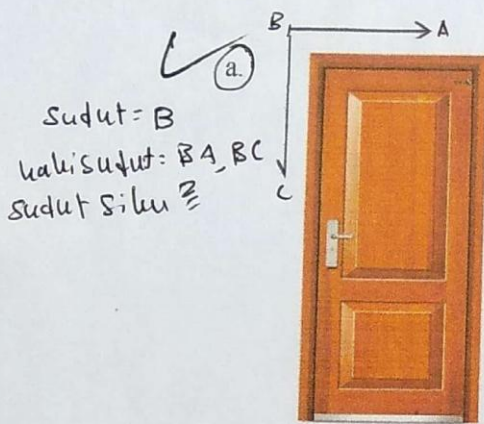 B A
a.
sudut = B
kaki sudut: BA, BC
C
sudut siku²